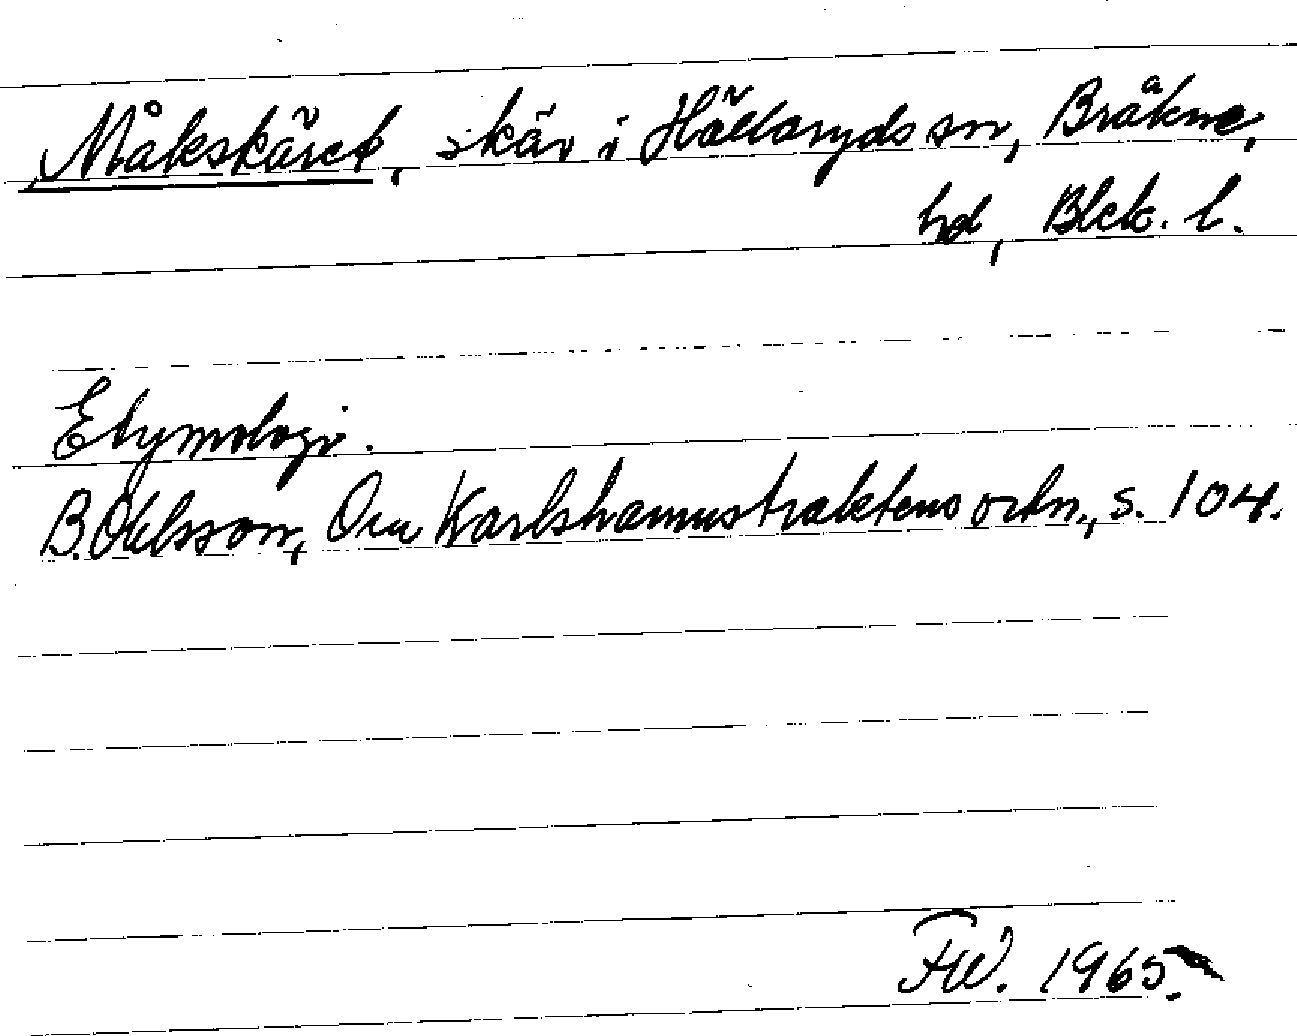 Måkskäret, skär i Hällaryds sn, Bräkne,
hd, Blek. l.
Etymologi.
B. Ohlsson, Om Karlshamnstraktens ortn., s. 104.
FW. 1965.